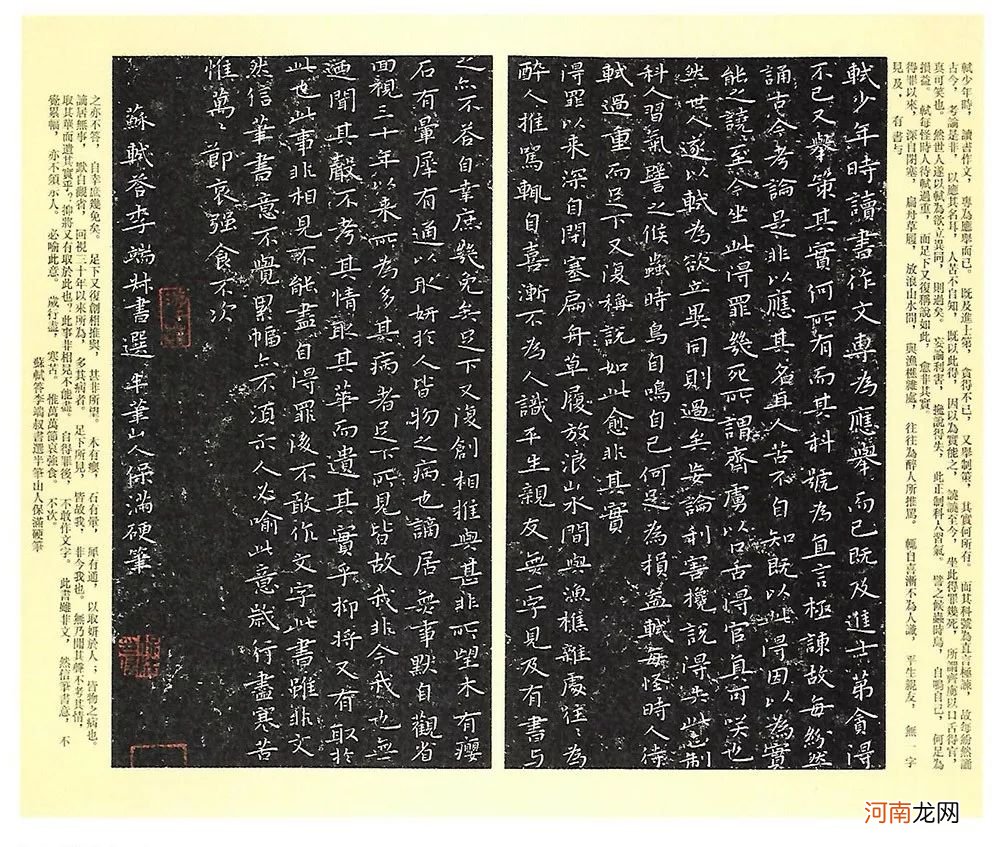 軾少年時，讀書作文，專為應舉而已。既及進士第，貪得不已，又舉制策，其實何所有。而其科號為直言極諫，故每紛然誦
古今，考論是非，以應其名耳，人苦不自知，既以此得，因以為實能之，譊譊至今，坐此得罪幾死，所謂齊虜以口舌得官，
真可笑也。然世人遂以軾為欲立異同，則過矣。妄論利害，攙說得失，此正制科人習氣。譬之候蟲時鳥，自鳴自已，何足為
損益。軾每怪時人待軾過重，而足下又復稱說如此，愈非其實。
得罪以來，深自閉塞，扁舟草履，放浪山水間，與漁樵雜處，往往為醉人所推罵。輒自喜漸不為人識，平生親友，無一字
見及，有書與
軾少年時讀書作文專為應舉而已既及進士第貪得
不已又舉策其實何所有而其科號為直言極諫故每紛然
誦古今考論是非以應其名耳人苦不自知既以此得因以為實
能之譊至今坐此得罪幾死所謂齊虜以口舌得官真可笑也
然世人遂以軾為欲立異同則過矣妄論利害攙說得失此正制
科人習氣譬之候蟲時鳥自鳴自已何足為損益軾每怪時人待
軾過重而足下又復稱說如此愈非其實
得罪以来深自閉塞扁舟草履放浪山水間與漁樵雜處往々為
醉人推罵輒自喜漸不為人識平生親友無字見及有書與
之亦不答自幸庶幾免矣足下又復創相推與甚非所望木有癭
石有暈犀有通以取妍於人皆物之病也謫居無事默自觀省
回視三十年以来所為多其病者足下所見皆故我非今我也無
迺聞其聲不考其情取其華而遺其實乎抑將又有取於
此也此事非相見不能盡自得罪後不敢作文字此書雖非文
然信筆書意不覺累幅亦不須示必喻此意歲行盡寒苦
惟萬々節哀强食不次
蘇軾答李端叔書選 半筆山人保滿硬筆
之亦不答，自幸庶幾免矣。足下又復創相推與，甚非所望。木有癭，石有暈，犀有通，以取妍於人；皆物之病也。
謫居無事，默自觀省，回視三十年以來所為，多其病者。足下所見，皆故我，非今我也。無乃聞其聲不考其情，
取其華而遺其實乎？抑將又有取於此也？此事非相見不能盡。自得罪後，不敢作文字。此書雖非文，然信筆書意，不
覺累幅，亦不須示人。必喻此意。歲行盡，寒苦。惟萬萬節哀強食，不次。
蘇軾答李端叔書選半筆山人保滿硬筆
河南龙网